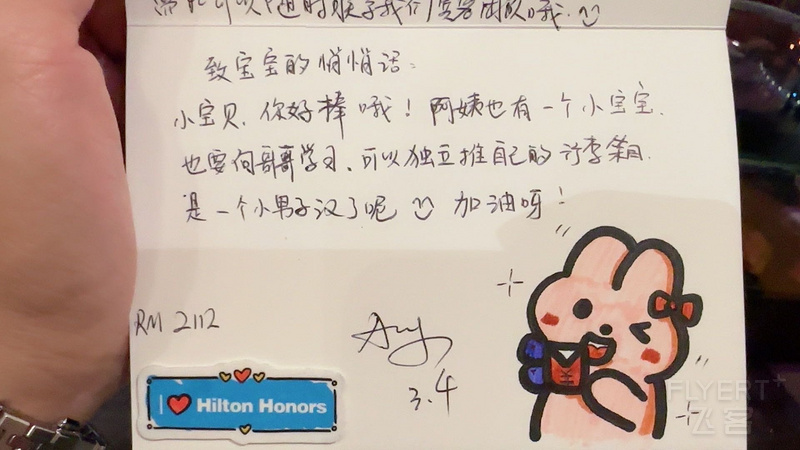 您都可以随时联系我们宾客团队哦.
致宝宝的悄悄话:
小宝贝,你好棒哦!阿姨也有一个小宝宝.
也要向哥哥学习、可以独立推自己的行李箱.
是一个小男子汉了呢 加油呀!
RM 2112
Amy
3.4
I ❤ Hilton Honors
FLYERT+
飞客